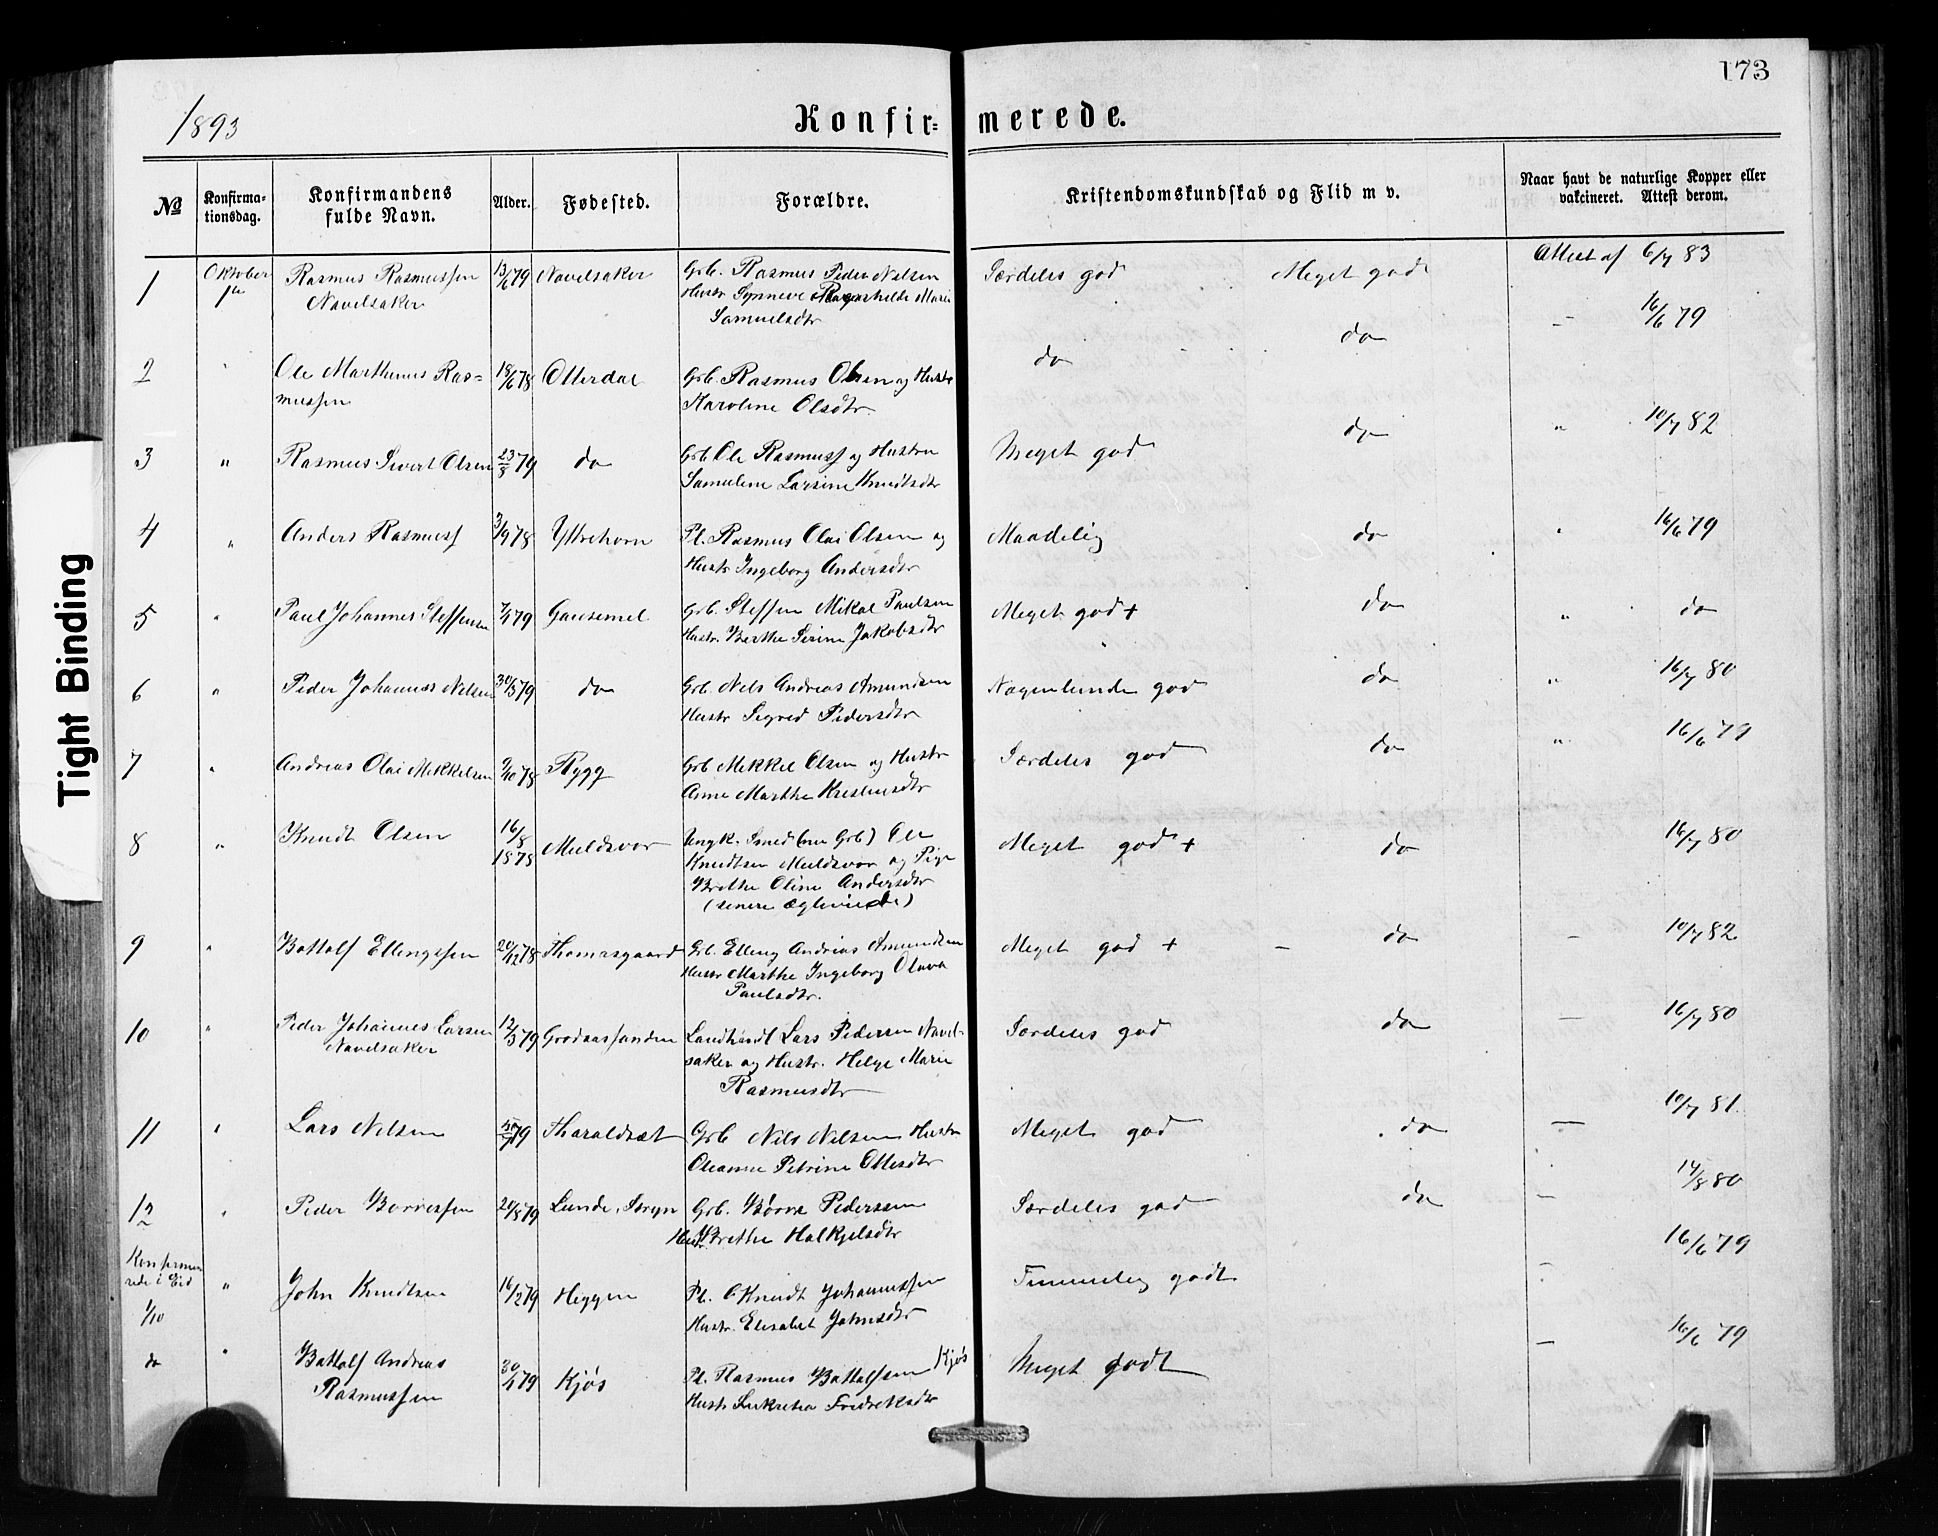 173
1893
Konfir= merede.
№ Konfirma-tionsdag. Konfirmandens fulde Navn. Alder. Fødested. Forældre. Kristendomskundskab og Flid m v. Naar havt de naturlige Kopper eller vakcineret. Attest derom.
1 Oktober 1ste Rasmus Rasmussen 13/6 79 Navelsaker Grb. Rasmus Peder Nilsen Særdeles god Meget god Attest af 6/7 83
Navelsaker Hustr Synneve Ragnhilde Marie
Samuelsdtr
2 " Ole Marthinus Ras= 18/6 78 Otterdal Grb. Rasmus Olsen og Hustr do do — 16/6 79
mussen Karoline Olsdtr.
3 " Rasmus Sivert Olsen 23/8 79 do Grb. Ole Rasmuss og Hustru Meget god do " 10/7 82
Samuline Larsine Knudtsdtr
4 " Anders Rasmuss 3/9 78 Yttrehorn Pl. Rasmus Olai Olsen og Maadelig do " 16/6 79
Hustr Ingeborg Andersdtr
5 " Paul Johannes Steffensen 7/1 79 Gausemel Grb. Steffen Mikal Paulsen Meget god + do " do
Hustr. Berthe Serine Jakobsdtr
6 " Peder Johannes Nilsen 30/3 79 do Grb. Nils Andreas Amundsen Nogenlunde god do " 16/7 80
Hustr Sigrid Pedersdtr
7 " Andreas Olai Mikkelsen 9/10 78 Rygg Grb Mikkel Olsen og Hustr Særdeles god do " 16/6 79
Anne Marthe Kristensdtr
8 " Knudt Olsen 16/8 1878 Muldsvor Ungk. Smed (nu Grb) Ole Meget god + do 16/7 80
Knudtsen Muldsvor og Pige
Brithe Oline Andersdtr
(senere ægteviede)
9 " Bottolf Ellingssen 20/12 78 Thomasgaard Grb. Elling Andrias Amundsen Meget god + – do — 10/7 82
Hustr Marthe Ingeborg Olava
Paulsdtr.
10 " Peder Johannes Larsen 12/3 79 Grodaassanden Landhandl Lars Pedersen Navel- Særdeles god do — 16/7 80
Navelsaker saker og Hustr. Helge Marie
Rasmusdtr
11 " Lars Nilsen 79 Tharaldsæt Grb Nils Nilsen Hustr Meget god do — 10/7 81.
Oleanne Petrine Ottesdtr
12 " Peder Børressen 20/8 79 Lunde, Stryn Grb. Børre Pederssen Særdeles god do — 14/8 80
Hustr. Brithe Halkjelsdtr
Konfirme-
rede i Eid
1/10 " John Knudtsen 16/2 79 Heggen Pl. Knudt Johannessen Temmelig godt – 16/6 79
Hustr. Elisabet Johnsdtr
do " Bottolf Andreas 30/1 79 Kjøs Pl. Rasmus Bottolfsen Kjøs Meget godt — 16/6 79
Rasmussen Hustr Lukretia Fredriksdtr
Tight Binding